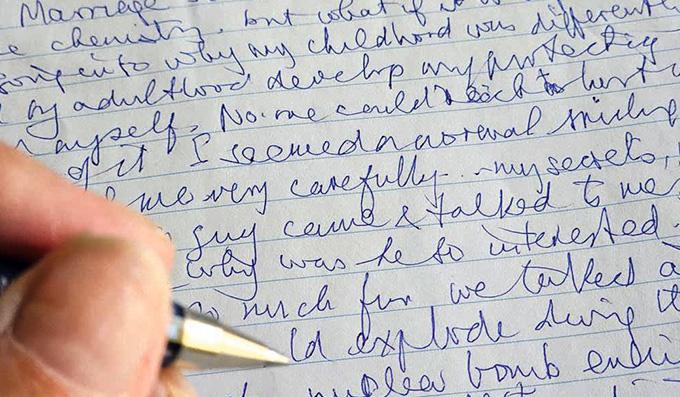 Marriage
chemistry, but what if it
into why my childhood was different
my adulthood develop my protecting
myself. No one could
of it I seemed a normal
me very carefully - my secrets,
guy came & talked to me
why was he so interested.
so much fun we talked
explode during it
nuclear bomb